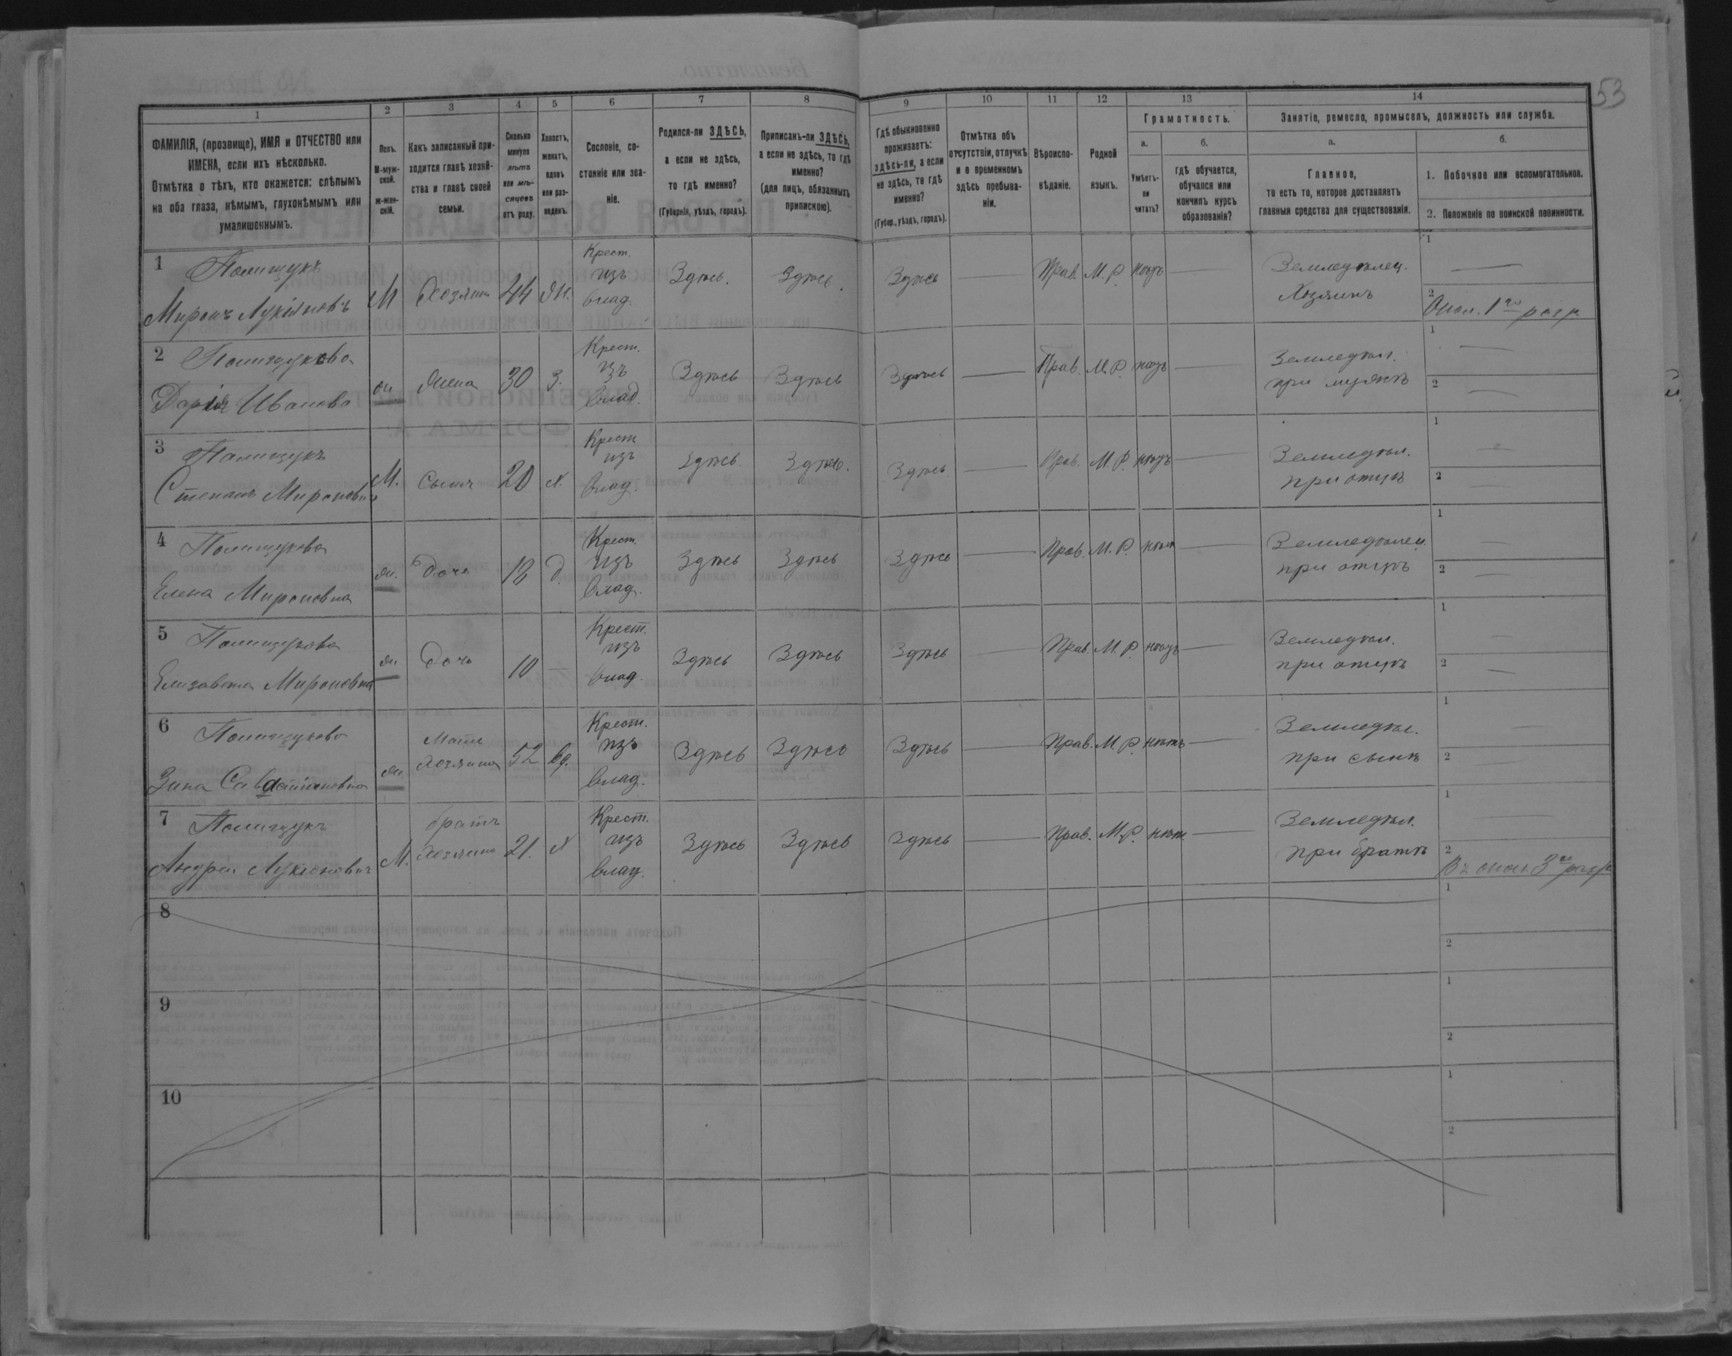 53
1 2 3 4 5 6 7 8 9 10 11 12 13 14
ФАМИЛІЯ, (прозвище), ИМЯ и ОТЧЕСТВО или ИМЕНА, если ихъ нѣсколько.
Отмѣтка о тѣхъ, кто окажется: слѣпымъ на оба глаза, нѣмымъ, глухонѣмымъ или умалишеннымъ.
Полъ.
М-мужской.
Ж-женскій.
Какъ записанный приходится главѣ хозяйства и главѣ своей семьи.
Сколько минуло лѣтъ или мѣсяцевъ отъ роду.
Холостъ, женатъ, вдовъ или разведенъ.
Сословіе, состояніе или званіе.
Родился-ли ЗДѢСЬ, а если не здѣсь, то гдѣ именно?
(Губернія, уѣздъ, городъ).
Приписанъ-ли ЗДѢСЬ, а если не здѣсь, то гдѣ именно?
(для лицъ, обязанныхъ припискою).
Гдѣ обыкновенно проживаетъ: здѣсь-ли, а если не здѣсь, то гдѣ именно?
(Губер., уѣздъ, городъ).
Отмѣтка объ отсутствіи, отлучкѣ и о временномъ здѣсь пребываніи.
Вѣроисповѣданіе.
Родной языкъ.
Грамотность.
а.
Умѣетъ-ли читать?
б.
гдѣ обучается, обучался или кончилъ курсъ образованія?
Занятіе, ремесло, промыселъ, должность или служба.
а.
Главное,
то есть то, которое доставляетъ главныя средства для существованія.
б.
1. Побочное или вспомогательное.
2. Положеніе по воинской повинности.
1 Полищукъ
Миронъ Лукіяновъ М Хозяинъ 44 Ж. Крест. изъ влад. Здѣсь. Здѣсь. Здѣсь — Прав. М.Р. нѣтъ — Земледѣлец. Хозяинъ
1 —
2 Опол. 1го разр
2 Полищукова
Дарія Иванова ж Жена 30 З. Крест. изъ влад. Здѣсь Здѣсь Здѣсь — Прав. М.Р. нѣтъ — Земледѣл. при мужѣ
1 —
2 —
3 Полищукъ
Степанъ Мироновъ М. Сынъ 20 х. Крест изъ влад. Здѣсь Здѣсь. Здѣсь — Прав. М.Р. нѣтъ — Земледѣл. при отцѣ
1 —
2 —
4 Полищукова
Елена Мироновна ж. дочь Д. Крест. изъ влад. Здѣсь Здѣсь Здѣсь — Прав. М.Р. нѣтъ — Земледѣлец при отцѣ
1 —
2 —
5 Полищукова
Елизавета Мироновна ж дочь 10 Крест. изъ влад Здѣсь Здѣсь Здѣсь — Прав. М.Р. нѣтъ — Земледѣл. при отцѣ
1 —
2 —
6 Полищукова
ж. Мать хозяина 52 вд. Крест. изъ влад. Здѣсь Здѣсь Здѣсь — Прав. М.Р. нѣтъ — Земледѣл. при сынѣ
1 —
2 —
7 Полищукъ
Андрей Лукіяновъ М. братъ хозяина 21. х Крест. изъ влад. Здѣсь Здѣсь Здѣсь — Прав. М.Р. нѣтъ — Земледѣл. при братѣ
1 —
2 разр
8
1
2
9
1
2
10
1
2